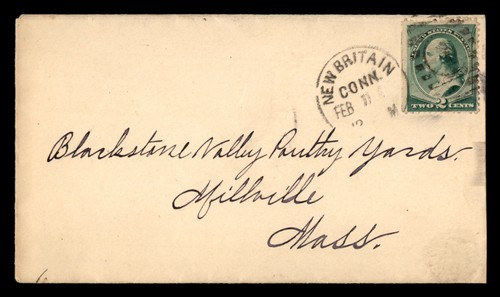 NEW BRITAIN
CONN.
FEB 11
M
UNITED STATES POSTAGE
TWO 2 CENTS
Blackstone Valley Poultry Yards.
Millville
Mass.